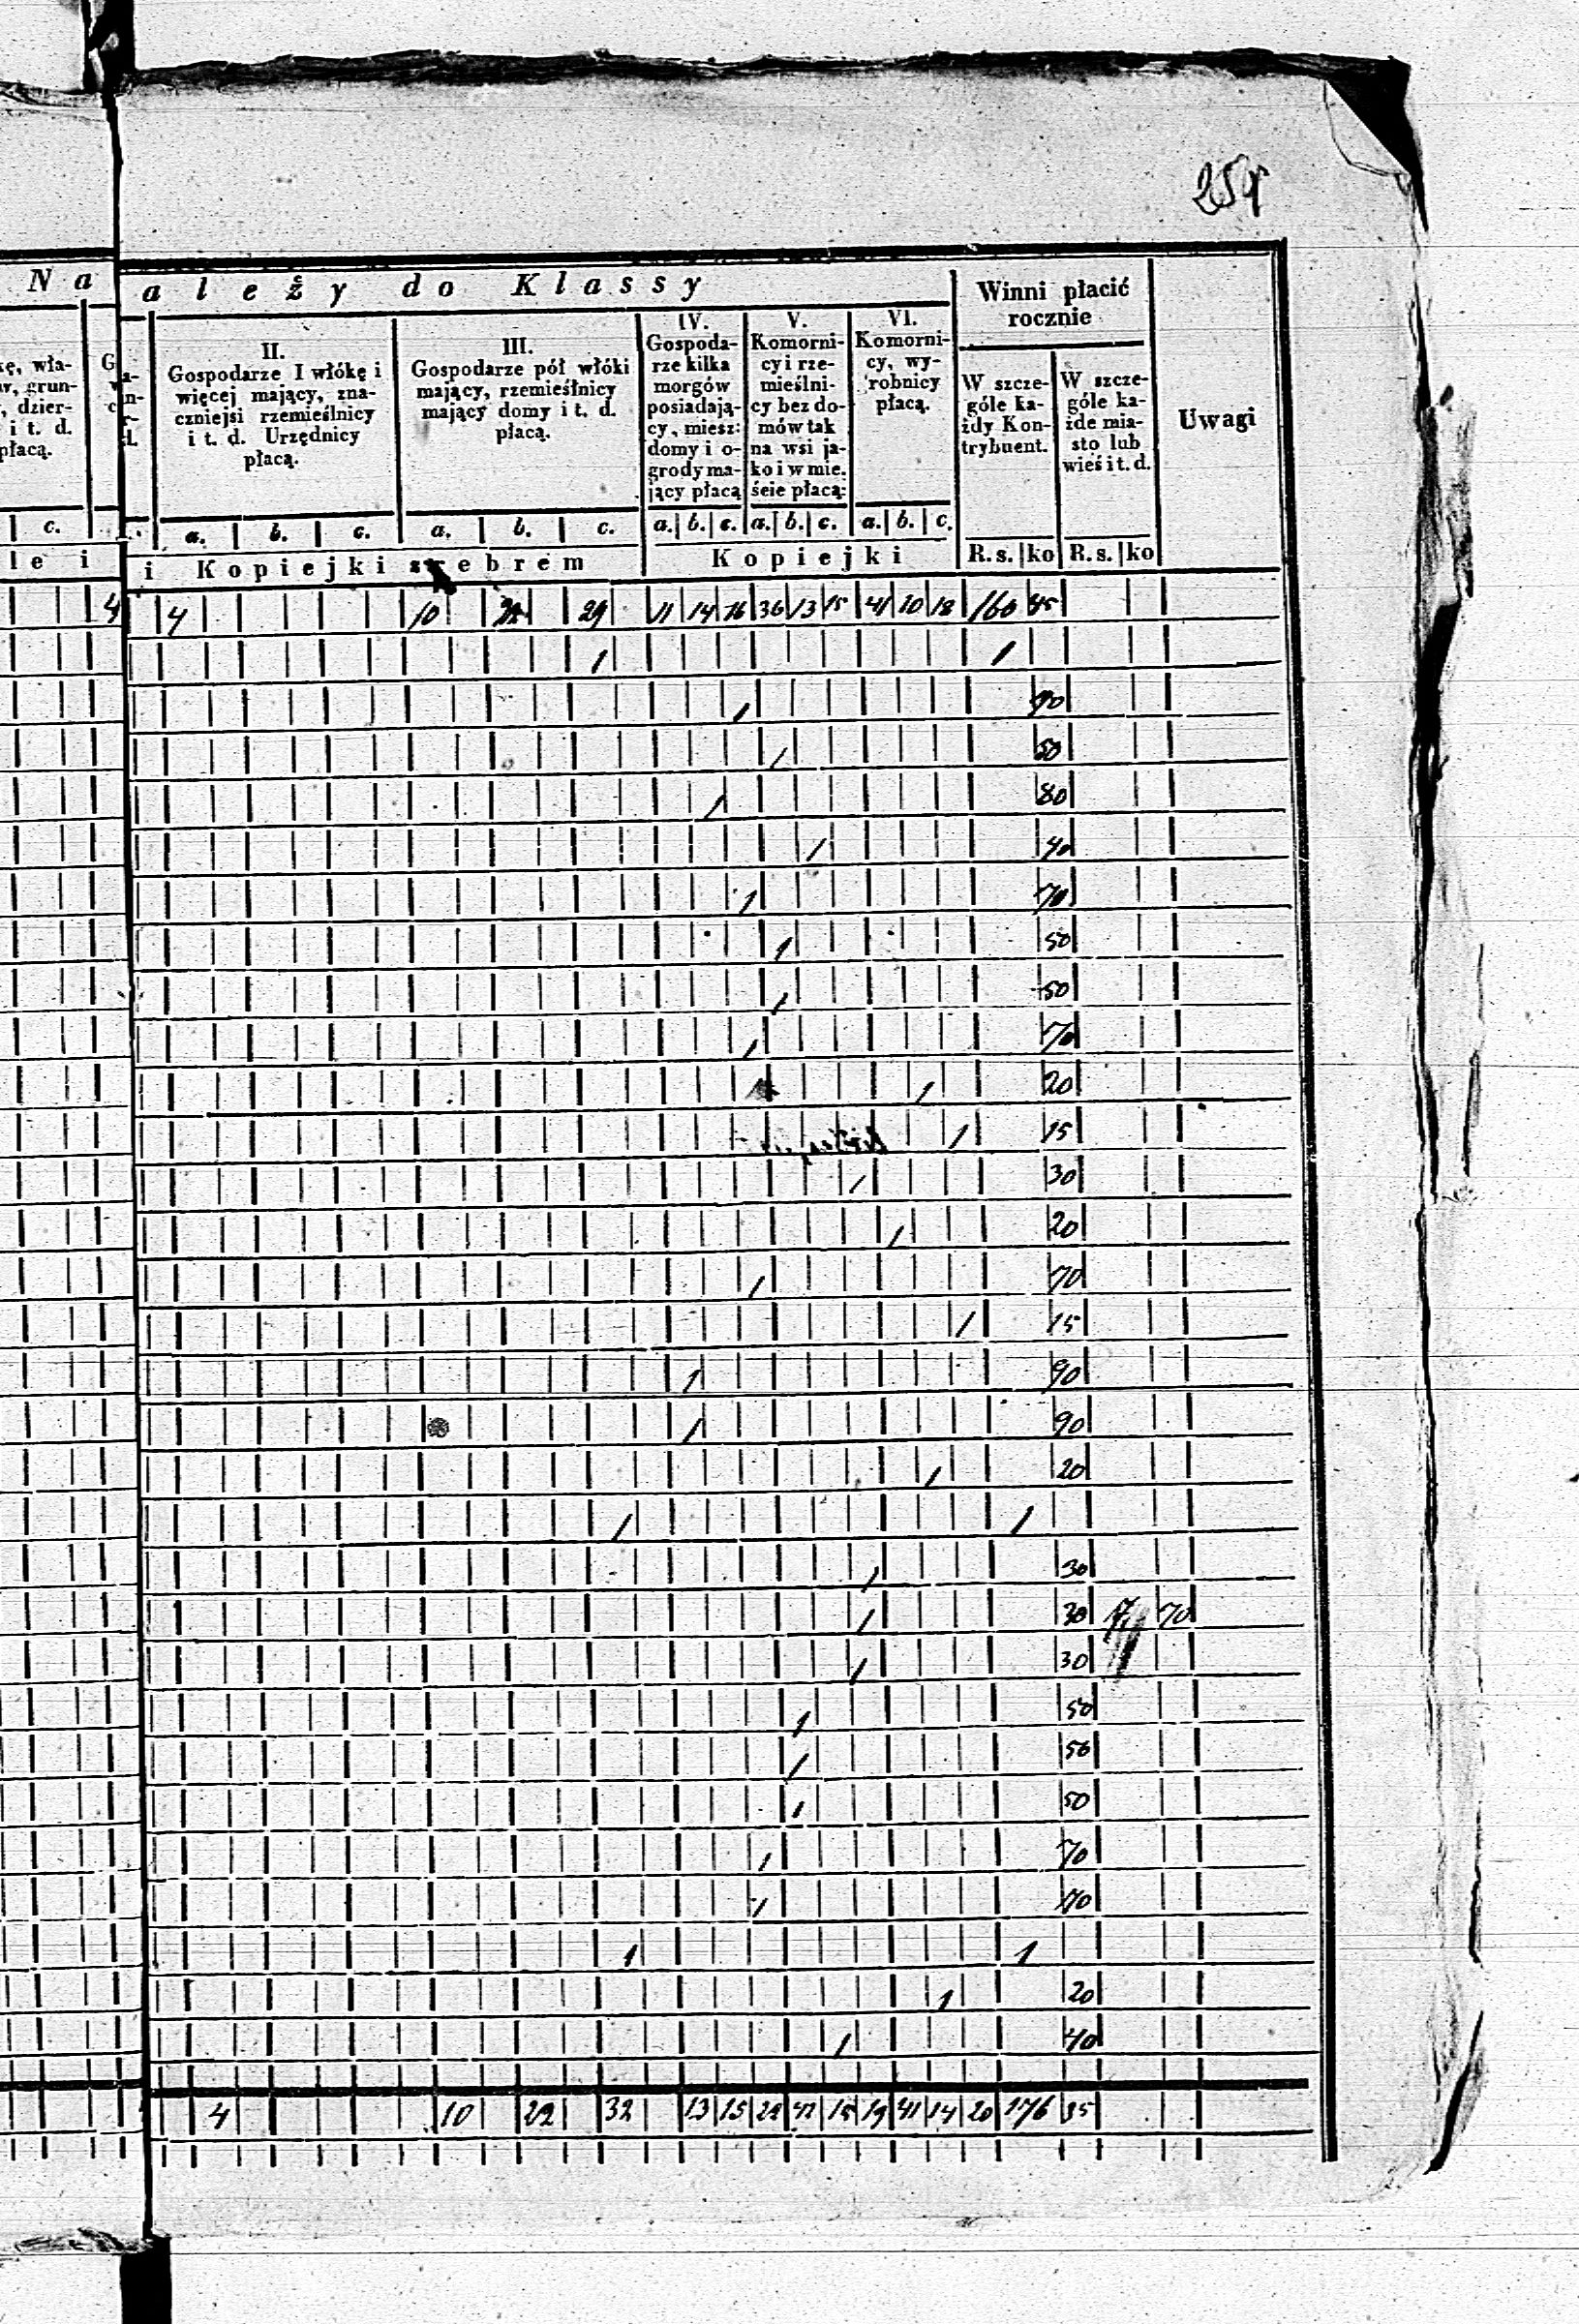 259
N a
a l e ż y d o K l a s s y
Winni płacić
rocznie
Uwagi
kę, wła-
w, grun-
, dzier-
i t. d.
płacą.
II.
Gospodarze I włókę i
więcej mający, zna-
czniejsi rzemieślnicy
i t. d. Urzędnicy
płacą.
III.
Gospodarze pół włóki
mający, rzemieślnicy
mający domy i t. d.
płacą.
IV.
Gospoda-
rze kilka
morgów
posiadają-
cy, miesz:
domy i o-
grody ma-
jący płacą
V.
Komorni-
cy i rze-
mieślni-
cy bez do-
mów tak
na wsi ja-
ko i w mie.
ście płacą:
VI.
Komorni-
cy, wy-
robnicy
płacą.
W szcze-
góle ka-
żdy Kon-
trybuent.
W szcze-
góle ka-
żde mia-
sto lub
wieś i t. d.
c. a. b. c. a. b. c. a. b. c. a. b. c. a. b. c.
l e i i K o p i e j k i s r e b r e m K o p i e j k i R. s. ko R. s. ko
4 4 10 29 11 14 16 36 13 15 41 10 18 160 45
1 1
1 90
1 50
1 80
1 40
1 70
1 50
1 50
1 70
1 20
1 15
1 30
1 20
1 70
1 15
1 90
1 90
1 20
1 1
1 30
1 30 17 70
1 30
1 50
1 50
1 50
1 70
1 70
1 1
1 20
1 40
4 10 22 32 13 15 22 42 15 19 41 14 20 176 35